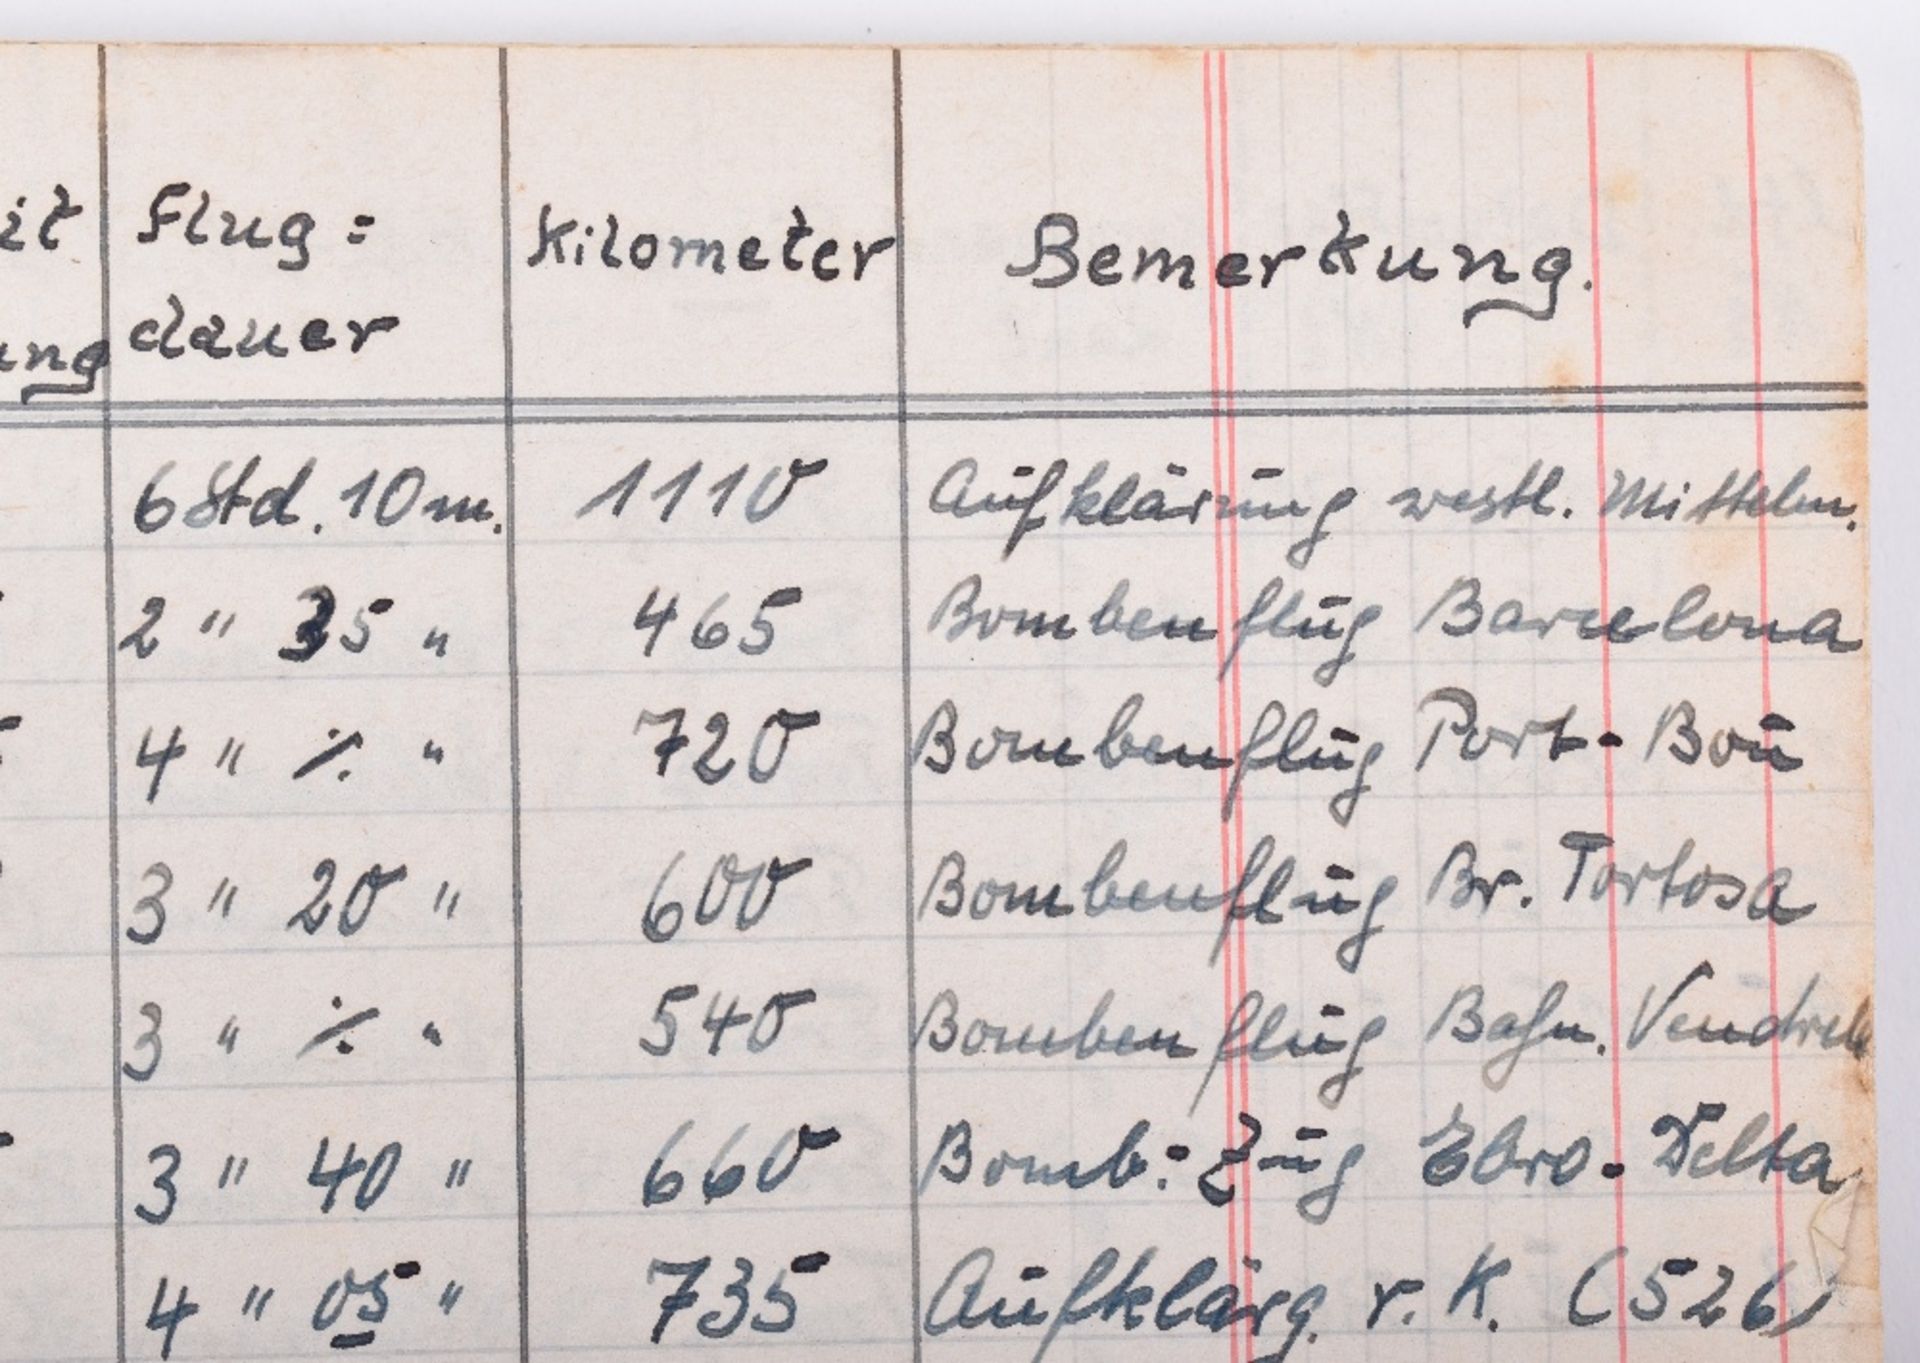 Flug= Kilometer Bemerkung.
dauer
6 Std. 10 m. 1110 Aufklärung westl. Mittelm.
2 " 35 " 465 Bombenflug Barcelona
4 " ·/. " 720 Bombenflug Port-Bou
3 " 20 " 600 Bombenflug Br. Tortosa
3 " ·/. " 540 Bombenflug Bahn. Vendrell
3 " 40 " 660 Bomb.- Ebro-Delta
4 " 05 " 735 Aufklärg. r. K. (526)